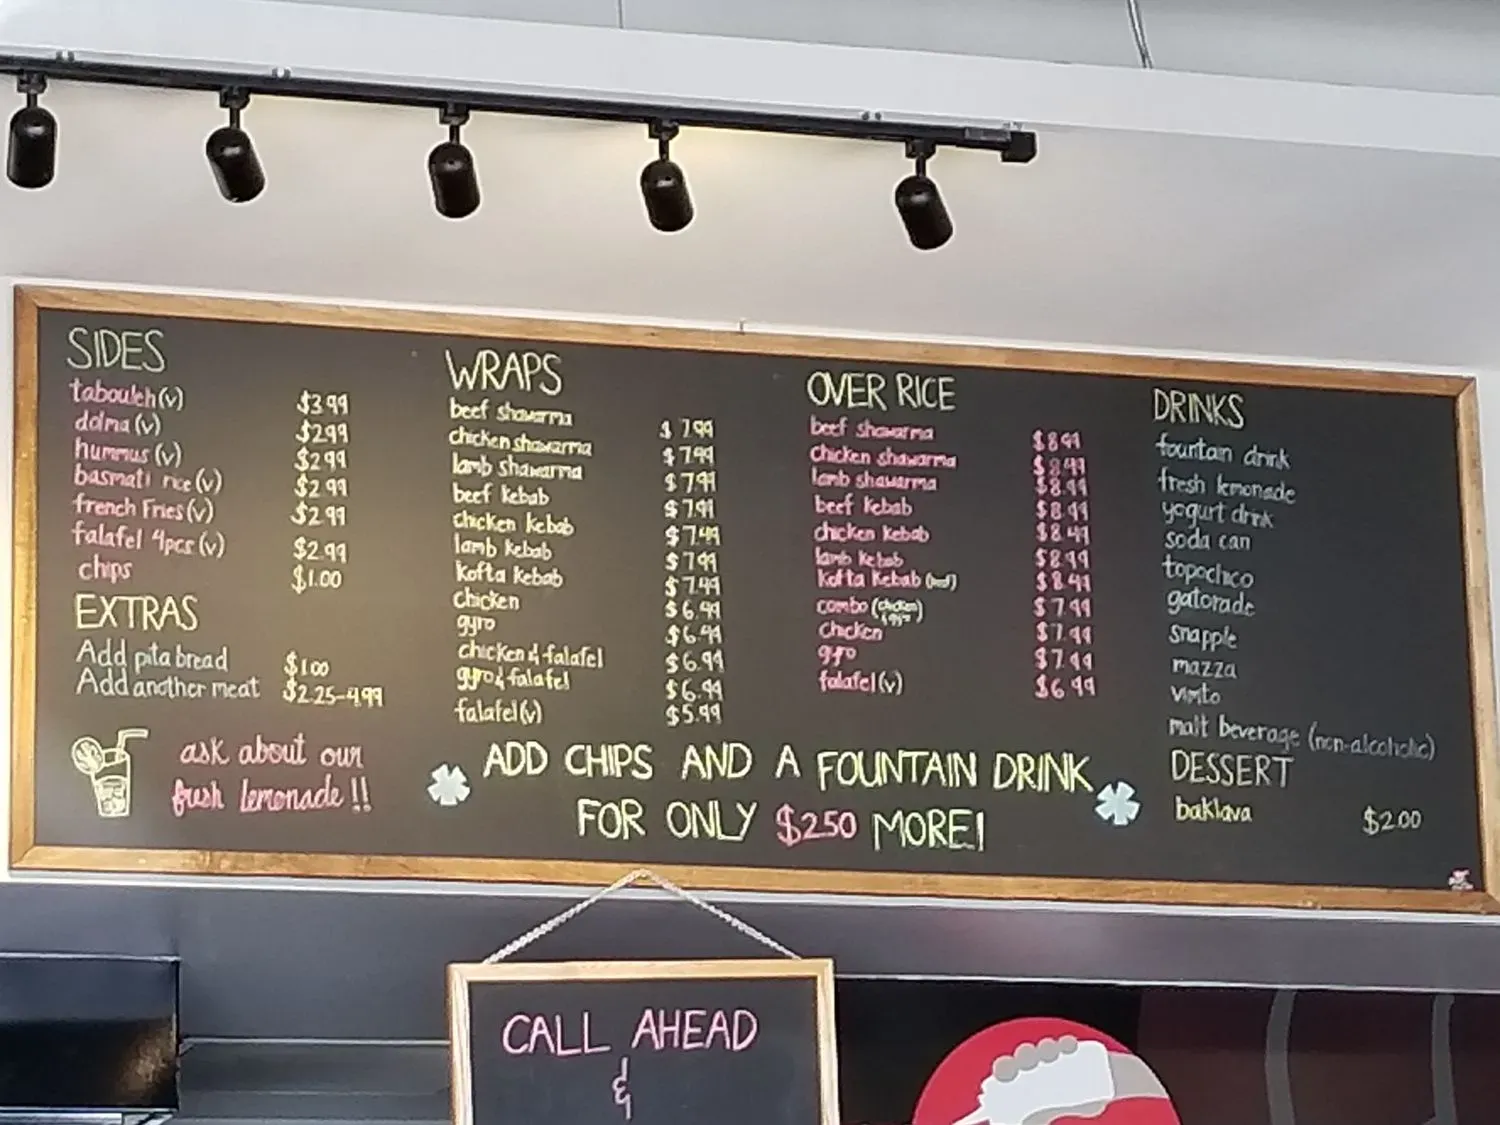 SIDES
tabouleh (v) $3.99
dolma (v) $2.99
hummus (v) $2.99
basmati rice (v) $2.99
french Fries (v) $2.99
falafel 4pcs (v) $2.99
chips $1.00
EXTRAS
Add pita bread $1.00
Add another meat $2.25-4.99
ask about our
fresh lemonade!!
WRAPS
beef shawarma $7.99
chicken shawarma $7.99
lamb shawarma $7.99
beef kebab $7.99
chicken kebab $7.99
lamb kebab $7.99
kofta kebab $7.99
chicken $6.99
gyro $6.99
chicken & falafel $6.99
gyro & falafel $6.99
falafel (v) $5.99
OVER RICE
beef shawarma $8.99
chicken shawarma $8.99
lamb shawarma $8.99
beef kebab $8.99
chicken kebab $8.99
lamb kebab $8.99
kofta kebab (beef) $8.99
combo (chicken & gyro) $7.99
chicken $7.99
gyro $7.99
falafel (v) $6.99
DRINKS
fountain drink
fresh lemonade
yogurt drink
soda can
topochico
gatorade
snapple
mazza
vimto
malt beverage (non-alcoholic)
DESSERT
baklava $2.00
ADD CHIPS AND A FOUNTAIN DRINK
FOR ONLY $2.50 MORE!
CALL AHEAD
&